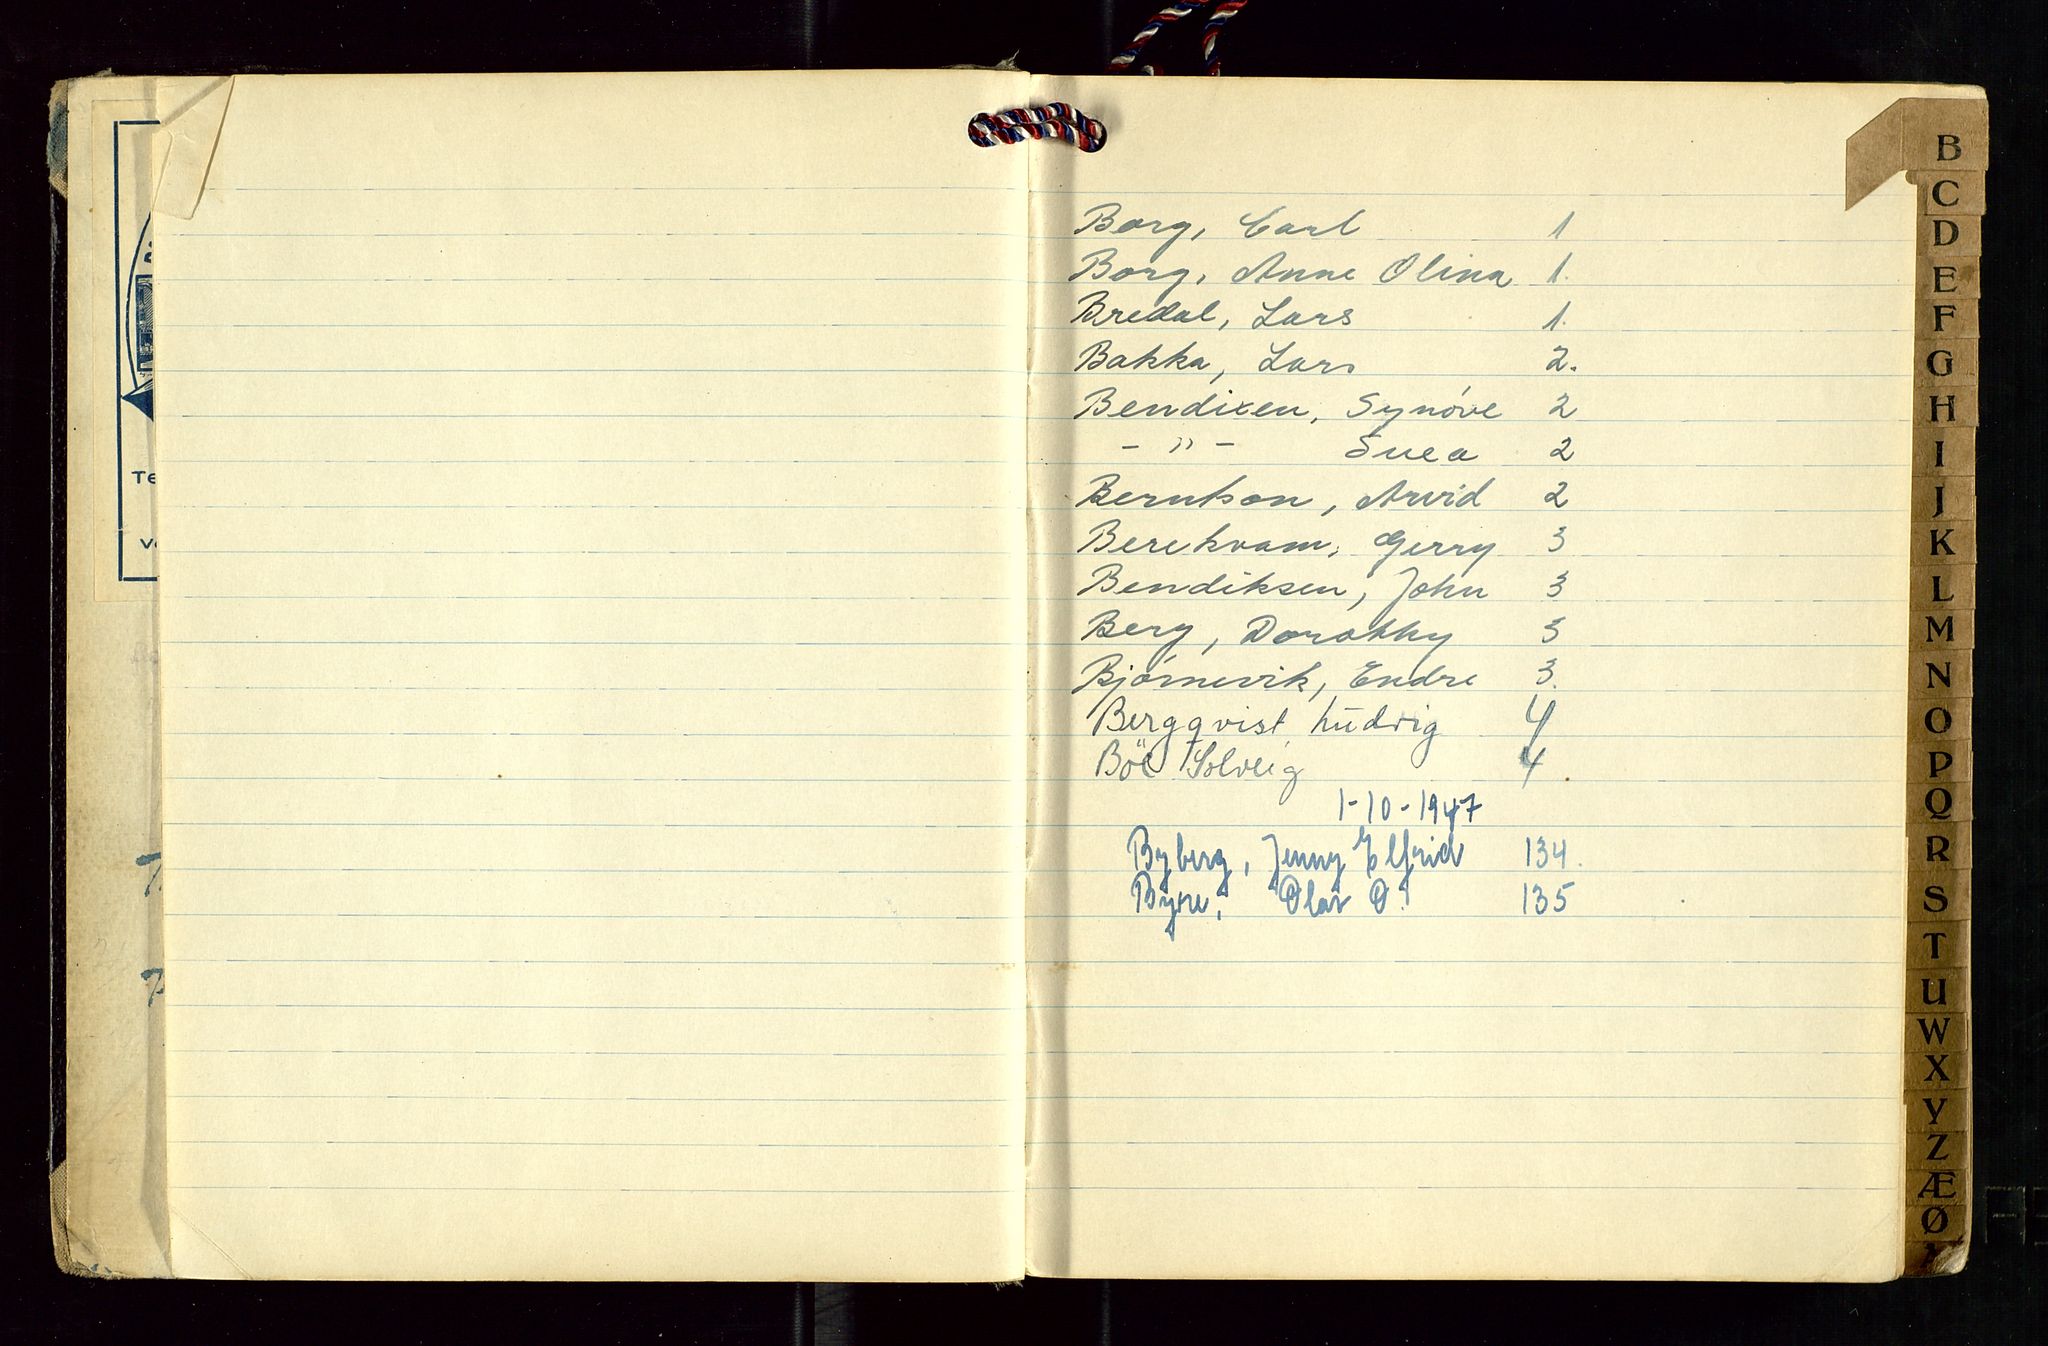 Borg, Carl 1
Borg, Anne Olina 1.
Bredal, Lars 1.
Bakka, Lars 2.
Bendixen, Synöve 2
- " - Svea 2
Berntson, Arvid 2
Berekvam, Gerry 3
Bendiksen, John 3
Berg, Dorothy 3
Bjørnevik, Endre 3.
Bergqvist Ludvig 4
Böe Solveig 4
1-10-1947
Byberg, Jenny Elfrid 134.
Byre, Olav O. 135
B
C
D
E
F
G
H
I
J
K
L
M
N
O
P
Q
R
S
T
U
W
X
Y
Z
Æ
Ø